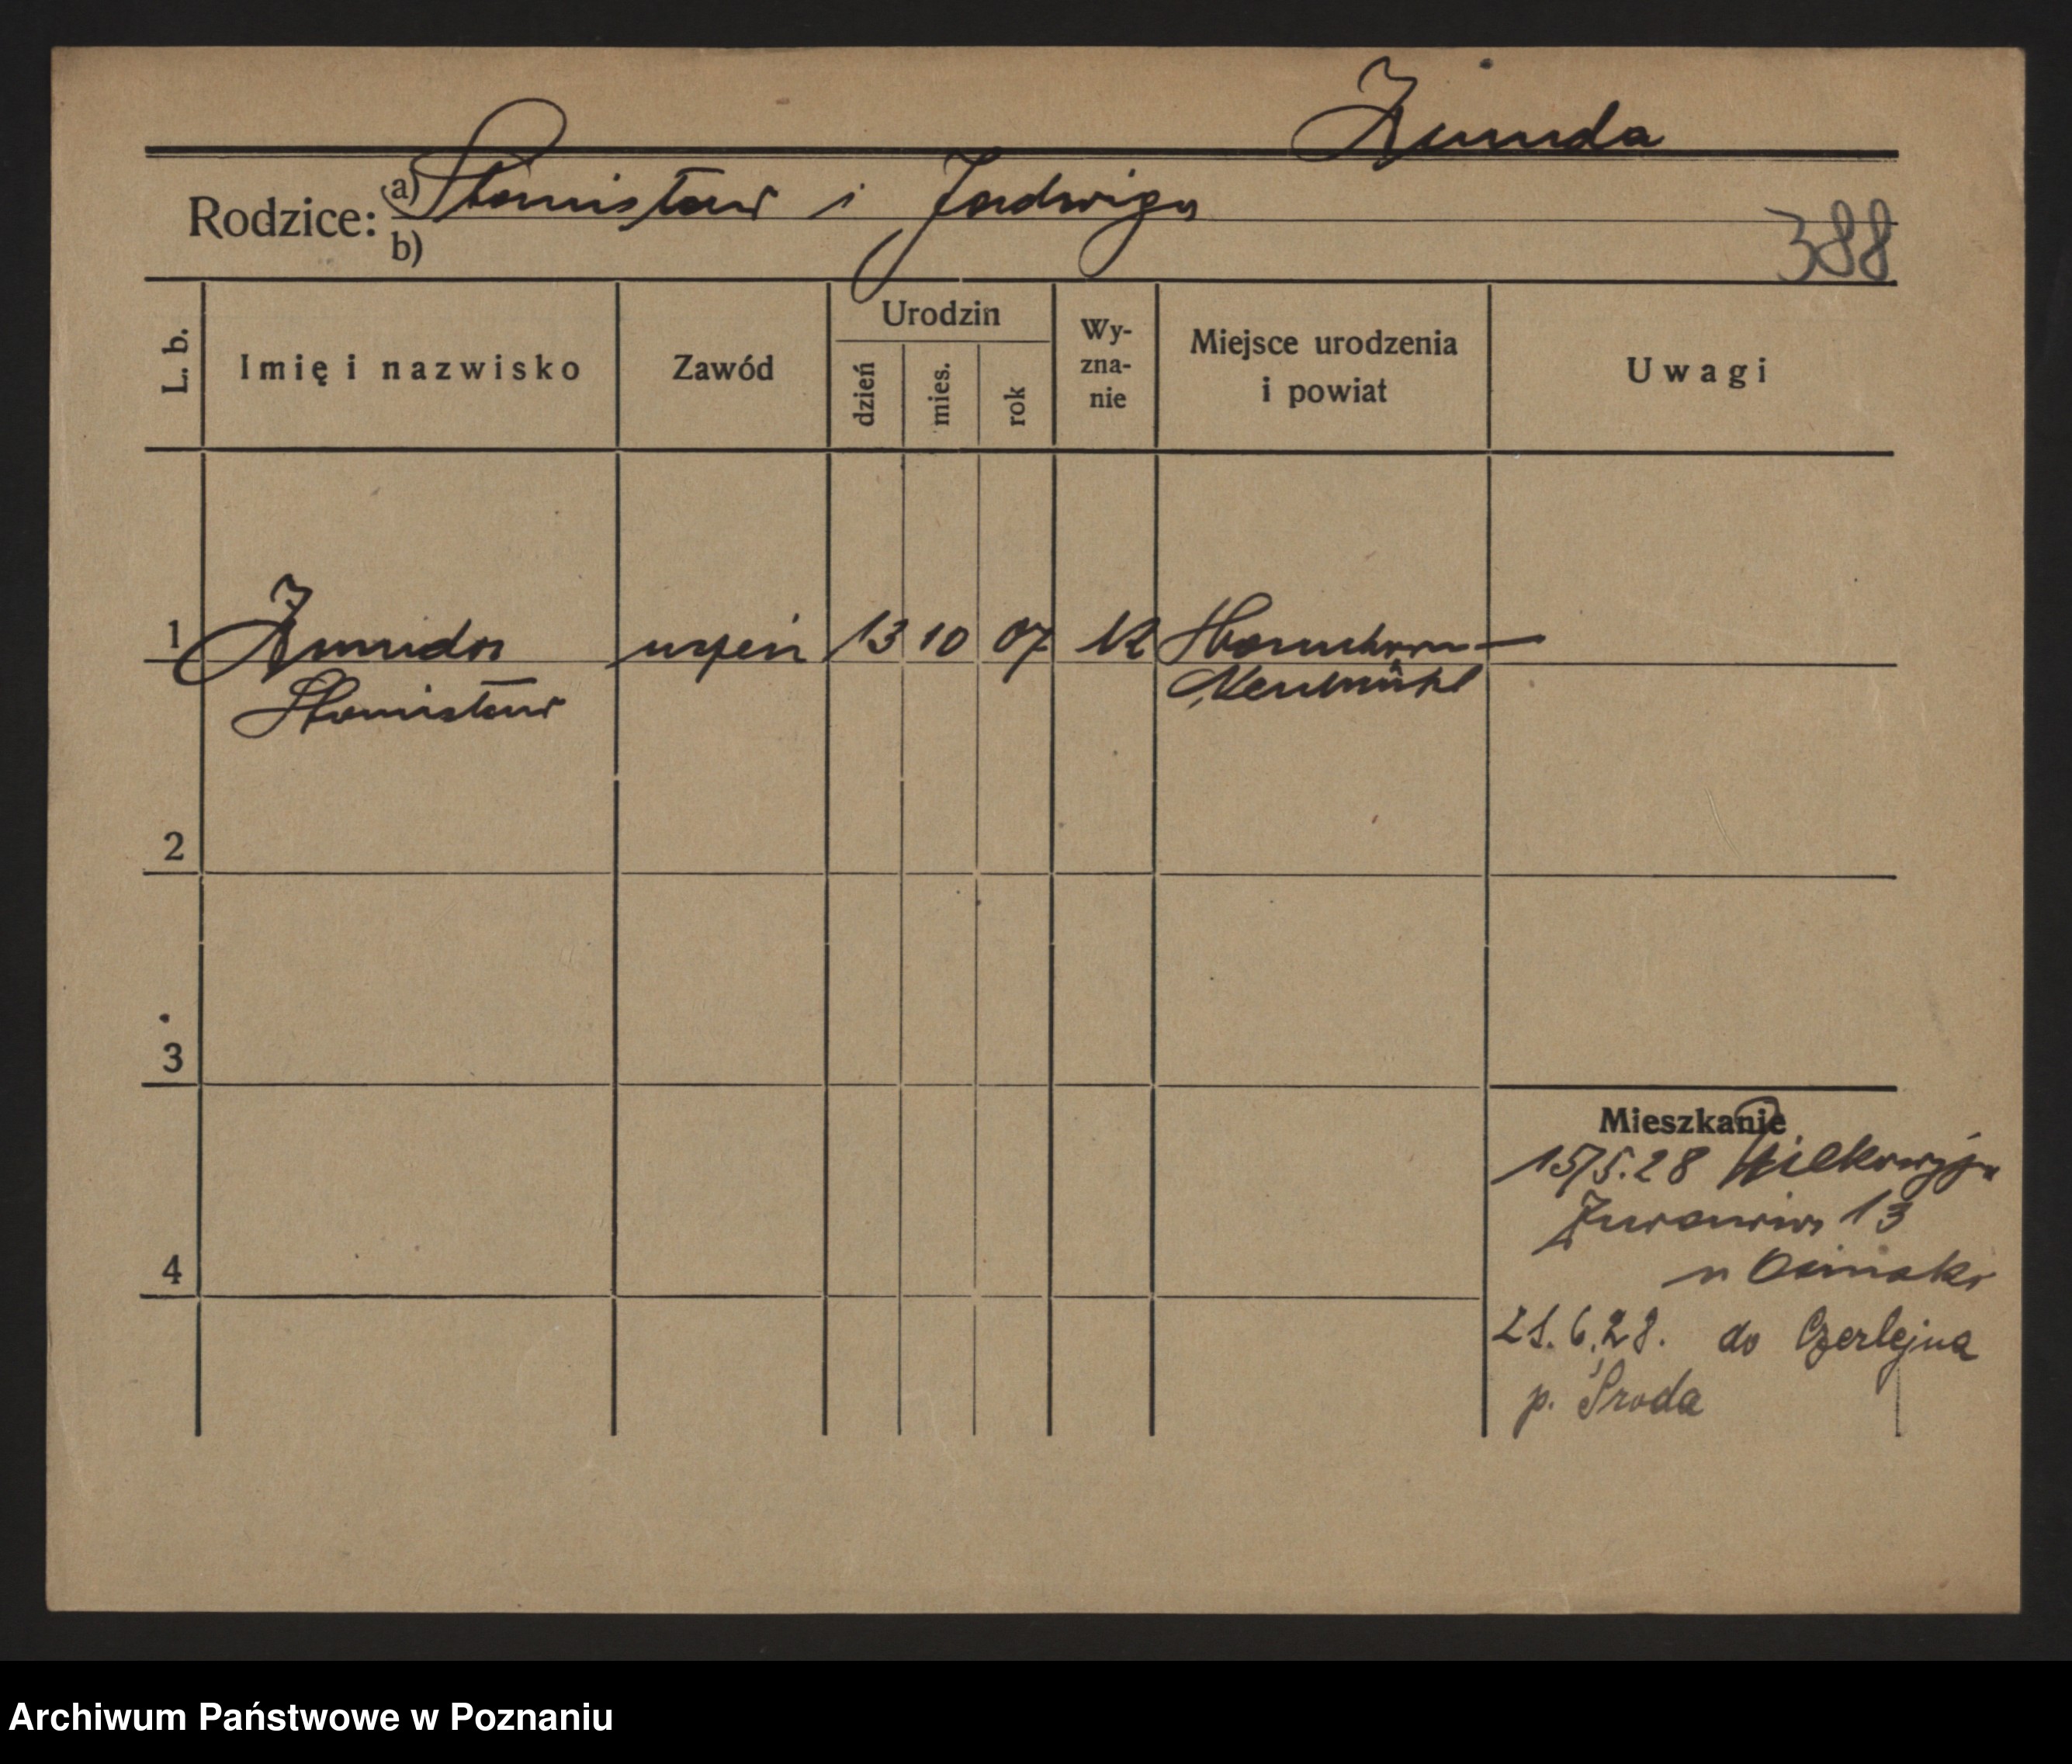 Żmuda
Rodzice: a) Stanisław i Jadwiga
b)
388
L. b.
Imię i nazwisko
Zawód
Urodzin
dzień
mies.
rok
Wy-
zna-
nie
Miejsce urodzenia
i powiat
Uwagi
1 Żmuda uczeń 13 10 07 K
Stanisław Neumühl
2
3
4
Mieszkanie
15/5.28 Wilkowyja
Żurawia 13
u
21.6.28. do Czerlejna
p. Środa
Archiwum Państwowe w Poznaniu